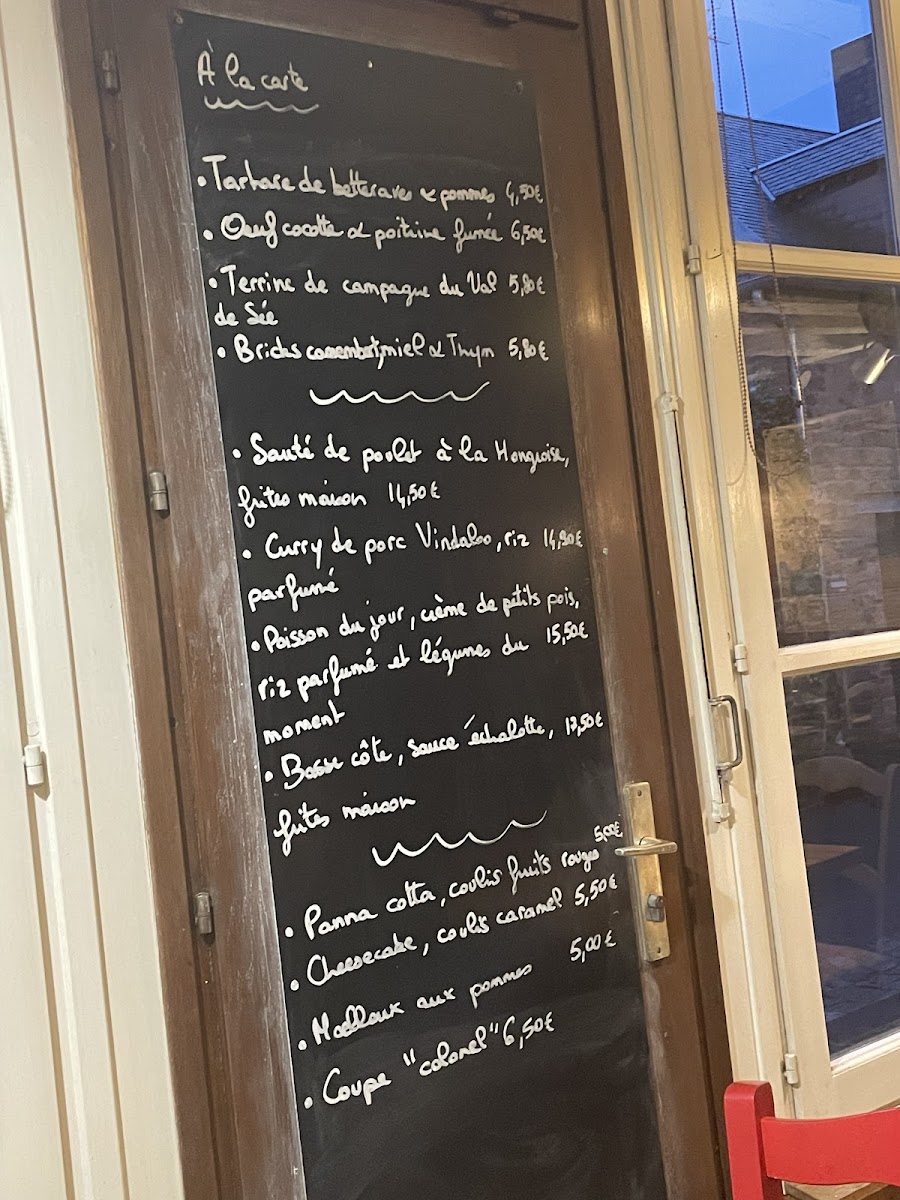 À la carte
• Tartare de betteraves & pommes 4,50€
• Oeuf cocotte & poitrine fumée 6,50€
• Terrine de campagne du Val 5,80€
de Sée
• Bricks camembert, miel & Thym 5,80€
• Sauté de poulet à la Hongroise,
frites maison 14,50€
• Curry de porc Vindaloo, riz 14,90€
parfumé
• Poisson du jour, crème de petits pois,
riz parfumé et légumes du 15,50€
moment
• Basse côte, sauce échalotte, 17,50€
frites maison
• Panna cotta, coulis fruits rouges 5,00€
• Cheesecake, coulis caramel 5,50€
• Moelleux aux pommes 5,00€
• Coupe "colonel" 6,50€